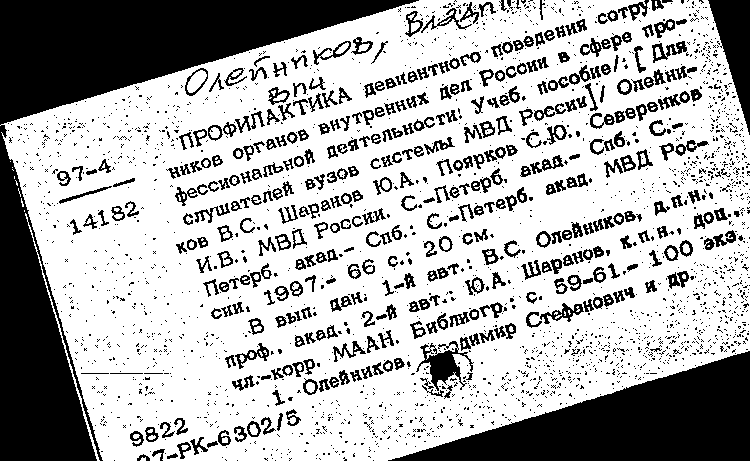 Олейников, Влади
впч
ПРОФИЛАКТИКА девиантного поведения сотруд-
ников органов внутренних дел России в сфере про-
фессиональной деятельности: Учеб. пособие/: [Для
слушателей вузов системы МВД России]/ Олейни-
ков В.С., Шаранов Ю.А., Поярков С.Ю., Северенков
И.В.; МВД России. С.-Петерб. акад.- Спб.: С.-
Петерб. акад.- Спб.: С.-Петерб. акад. МВД Рос-
сии, 1997.- 66 с.; 20 см.
В вып. дан. 1-й авт.: В.С. Олейников, д.п.н.,
проф., акад.; 2-й авт.: Ю.А. Шаранов, к.п.н., доц.,
чл.-корр. МААН. Библиогр.: с. 59-61.- 100 экз.
1. Олейников, Владимир Стефанович и др.
97-4
14182
9822
97-РК-6302/5